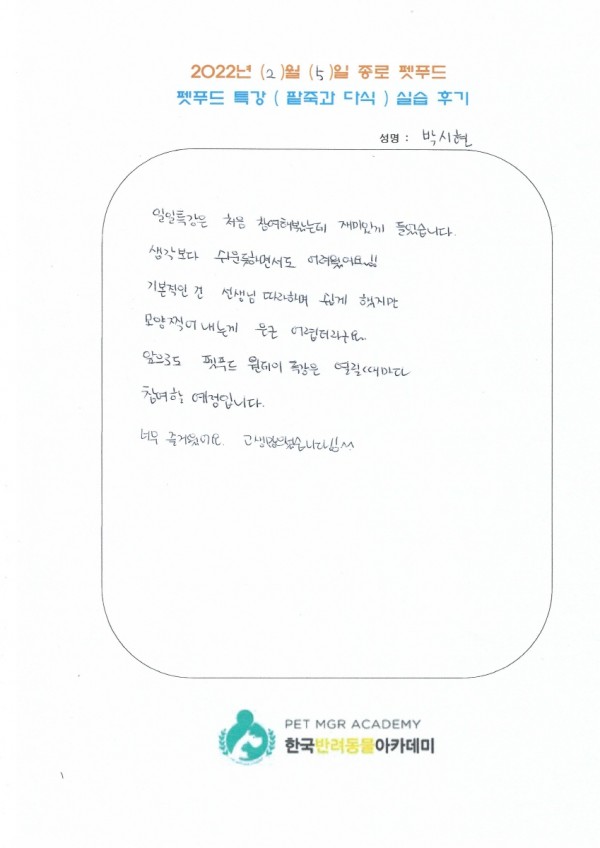 2022년 (2)월 (5)일 종로 펫푸드
펫푸드 특강 ( 팥죽과 다식 ) 실습 후기
성명 : 박시현
일일특강은 처음 참여해봤는데 재미있게 들었습니다.
생각보다 쉬운듯하면서도 어려웠어요!!
기본적인 건 선생님 따라하며 쉽게 했지만
모양 찍어 내는게 은근 어렵더라구요.
앞으로도 펫푸드 원데이 특강은 열릴때마다
참여할 예정입니다.
너무 즐거웠어요. 고생많으셨습니다!! ^^
PET MGR ACADEMY
한국반려동물아카데미